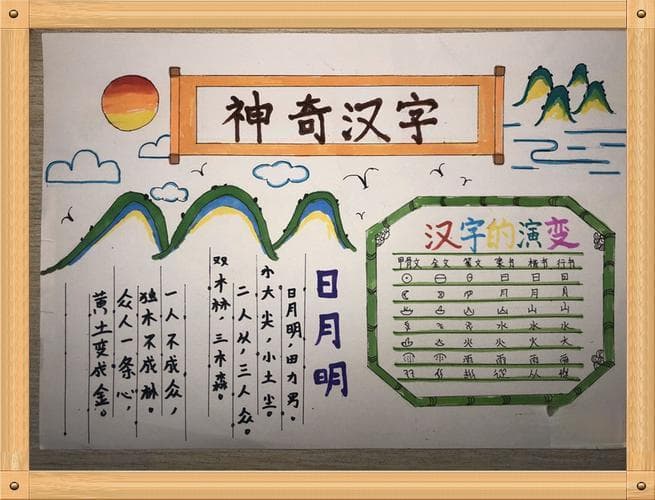 神奇汉字
日月明
日月明,田力男。
小大尖,小土尘。
二人从,三人众。
双木林,三木森。
一人不成众,
独木不成林。
众人一条心,
黄土变成金。
汉字的演变
甲骨文 金文 篆文 隶书 楷书 行书
日 日 日
月 月 月
山 山 山
水 水 水
火 火 火
雨 雨 雨
從 从